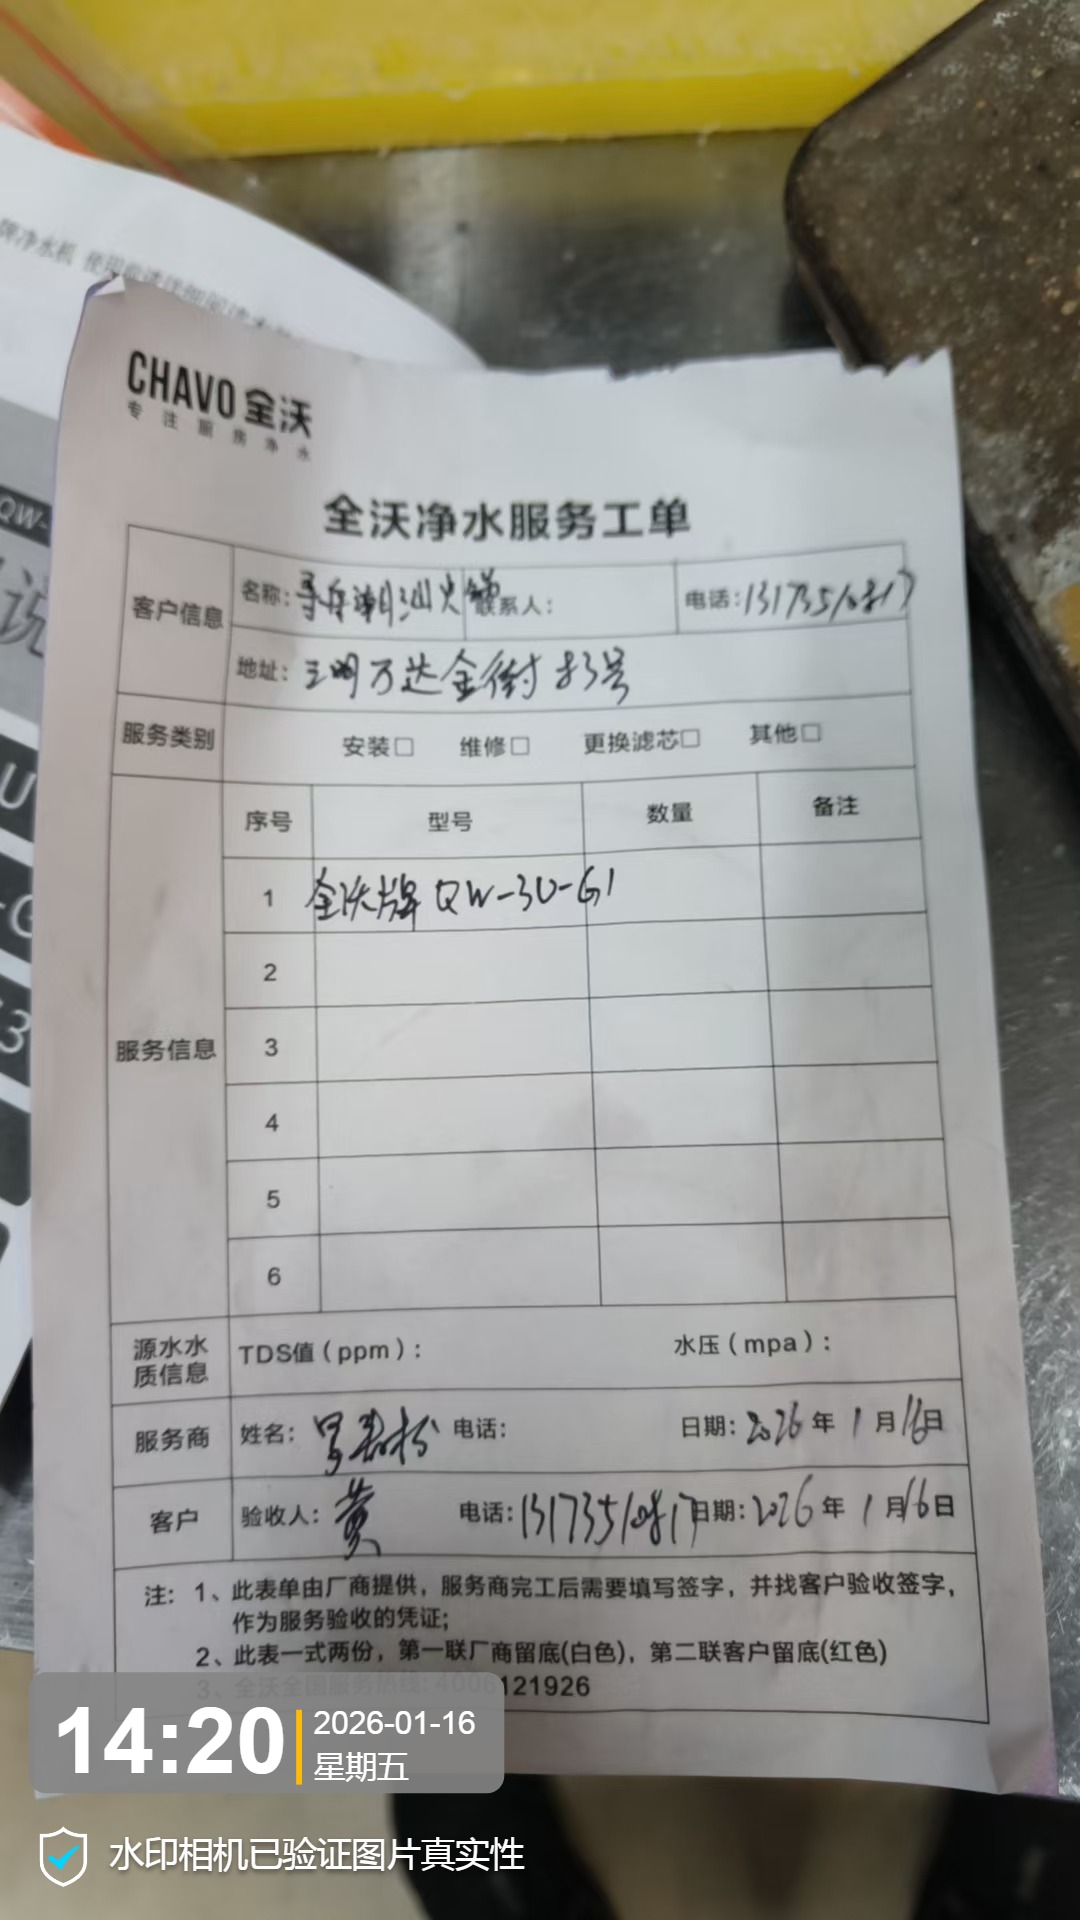 牌净水机 使用前请详细阅读本
QW-
说
U
-G
3
CHAVO 全沃
专注厨房净水
全沃净水服务工单
客户信息 名称: 潮汕火锅 联系人: 电话:13173510817
地址: 三明万达金街 83号
服务类别 安装□ 维修□ 更换滤芯□ 其他□
序号 型号 数量 备注
1 全沃牌 QW-3U-G1
2
服务信息 3
4
5
6
源水水质信息 TDS值(ppm): 水压(mpa):
服务商 姓名: 电话: 日期:2026年 1月16日
客户 验收人: 黄 电话:13173510817 日期:2026年 1月16日
注: 1、此表单由厂商提供，服务商完工后需要填写签字，并找客户验收签字，
作为服务验收的凭证;
2、此表一式两份，第一联厂商留底(白色)，第二联客户留底(红色)
3、全沃全国服务热线: 4006121926
14:20 2026-01-16
星期五
水印相机已验证图片真实性